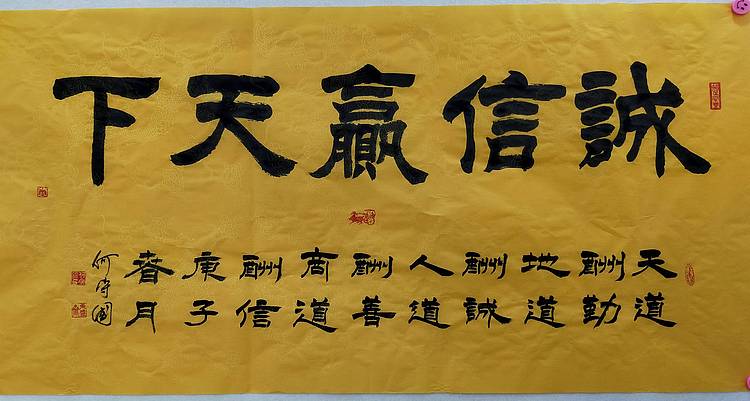 誠信贏天下
天道
酬勤
地道
酬誠
人道
酬善
商道
酬信
庚子
春月
何國